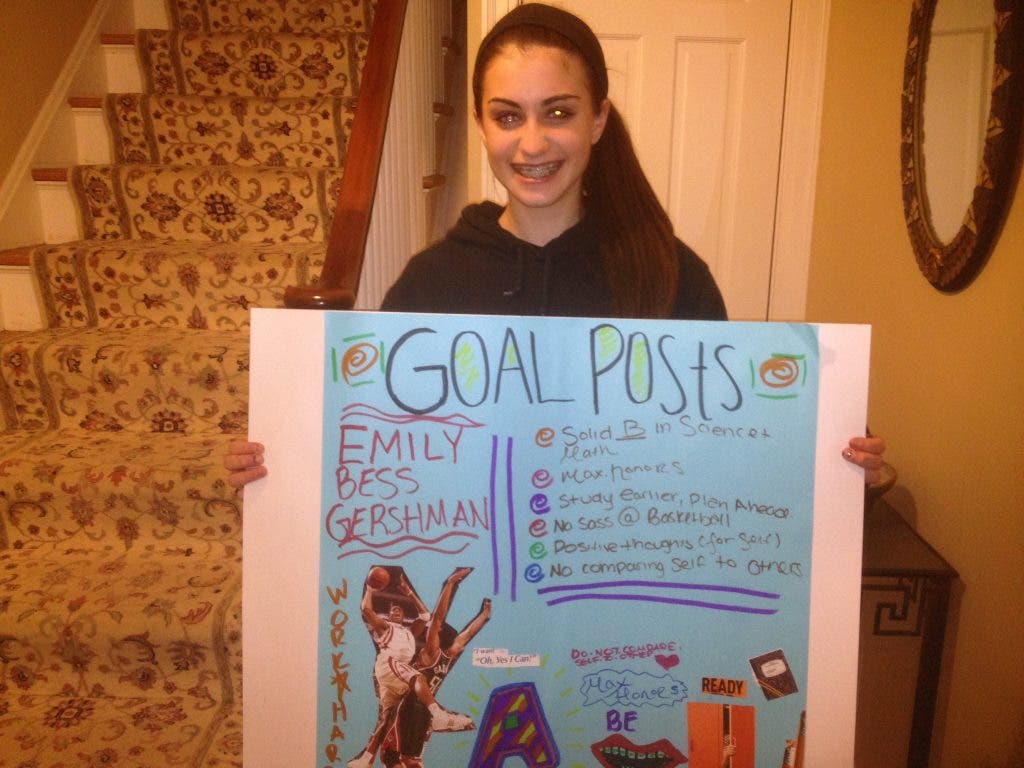 GOAL POSTS
EMILY
BESS
GERSHMAN
Solid B in Science +
Math
Max. honors
Study Earlier, Plan Ahead
No Sass @ Basketball
Positive thoughts (for self)
No comparing self to others
WORK HARD
"I want
"Oh, Yes I Can!"
DO NOT COMPARE
SELF 2 OTHER
Max
Honors
BE
READY
A